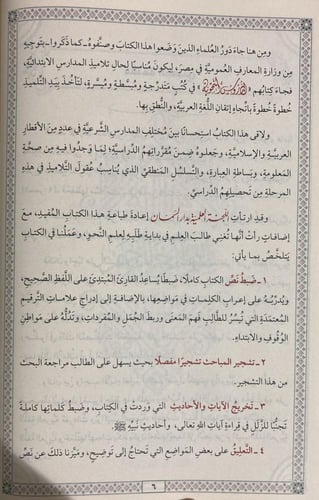 ومِن هنا جاءَ دَورُ العُلماءِ الذينَ وَضَعوا هذا الكتابَ وصنَّفوهُ ـ كما ذكَروا ـ بتَوجيهٍ
مِن وِزارةِ المعارفِ العموميَّةِ في مِصرَ، ليكونَ مُناسِبًا لِحالِ تلاميذِ المدارسِ الابتدائيَّةِ،
فجاءَ كتابُهم «الدُّرُوسُ النَّحْوِيَّةُ» في كُتُبٍ مُتدرِّجةٍ ومُبسَّطةٍ ومُيسَّرةٍ، لتَأخُذَ بيَدِ التِّلميذِ
خُطوةً خُطوةً باتِّجاهِ إتقانِ اللُّغةِ العربيَّةِ، والنُّطقِ بها.
ولاقى هذا الكتابُ استِحسانًا بينَ مُختَلِفِ المدارسِ الشَّرعيَّةِ في عددٍ مِنَ الأقطارِ
العربيَّةِ والإسلاميَّةِ، وجَعلوهُ ضِمنَ مُقرَّراتِهِمُ الدِّراسيَّةِ؛ لِمَا وَجدُوا فيهِ مِن صِحَّةِ
المعلومةِ، وبَساطةِ العِبارةِ، والتَّسلسُلِ المنطقيِّ الذي يُناسِبُ عُقولَ التَّلاميذِ في هذهِ
المرحلةِ مِن تَحصيلِهِمُ الدِّراسيِّ.
وقدِ ارتَأتِ اللَّجنةُ العِلميَّةُ بدارِ السَّمَّان إعادةَ طباعةِ هذا الكتابِ المُفيدِ، معَ
إضافاتٍ رأتْ أنَّها تُغني طالبَ العِلمِ في بدايةِ طَلَبِهِ لِعلمِ النَّحوِ، وعمَلُنا في الكتابِ
يَتلخَّصُ بما يأتي:
١ ـ ضَبطُ نَصِّ الكتابِ كاملًا، ضَبطًا يُساعِدُ القارِئَ المُبتدِئَ على اللَّفظِ الصَّحيحِ،
ويُدرِّبُهُ على إعرابِ الكلماتِ في مَواضِعِها، بالإضافةِ إلى إدراجِ علاماتِ التَّرقيمِ
المُعتمَدةِ التي تُيسِّرُ للطَّالبِ فَهمَ المعنى وربطَ الجُمَلِ والمُفرداتِ، وتَدُلُّهُ على مَواطِنِ
الوُقوفِ والابتداءِ.
٢ ـ تشجير المباحث تشجيرًا مفصلًا بحيث يسهل على الطالب مراجعة البحث
من هذا التشجير.
٣ ـ تَخريجُ الآياتِ والأحاديثِ التي وَردتْ في الكتابِ، وضَبطُ كلماتِها كاملةً
تَجنُّبًا للزَّللِ في قِراءةِ آياتِ اللهِ تعالى، وأحاديثِ نَبيِّهِ ﷺ.
٤ ـ التَّعليقُ على بعضِ المَواضِعِ التي تَحتاجُ إلى تَوضيحٍ، وميَّزنا ذلكَ عن نَصِّ
٦